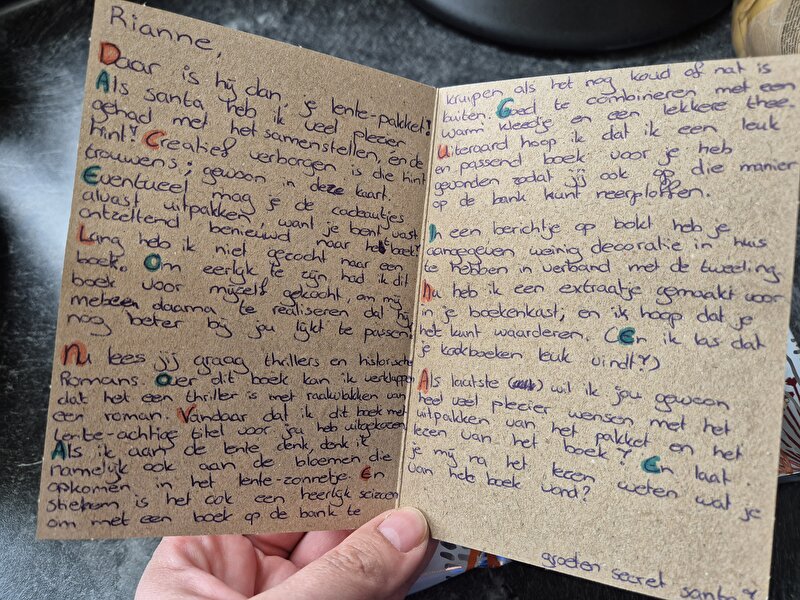 Rianne,
Daar is hij dan, je lente-pakket!
Als santa heb ik veel plezier
gehad met het samenstellen, en de
hint? Creatief verborgen is die hint
trouwens; gewoon in deze kaart.
Eventueel mag je de cadeautjes
alvast uitpakken, want je bent vast
ontzettend benieuwd naar het boek?
Lang heb ik niet gezocht naar een
boek. Om eerlijk te zijn had ik dit
boek voor mijzelf gekocht, om mij
meteen daarna te realiseren dat hij
nog beter bij jou lijkt te passen.
Nu lees jij graag thrillers en historische
Romans. Over dit boek kan ik verklappen
dat het een thriller is met raakvlakken van
een roman. Vandaar dat ik dit boek met
lente-achtige titel voor jou heb uitgekozen
Als ik aan de lente denk, denk ik
namelijk ook aan de bloemen die
opkomen in het lente-zonnetje. En
stiekem is het ook een heerlijk seizoen
om met een boek op de bank te
kruipen als het nog koud of nat is
buiten. Goed te combineren met een
warm kleedje en een lekkere thee.
Uiteraard hoop ik dat ik een leuk
en passend boek voor je heb
gevonden zodat jij ook op die manier
op de bank kunt neerploffen.
In een berichtje op bokt heb je
aangegeven weinig decoratie in huis
te hebben in verband met de tweeling.
Nu heb ik een extraatje gemaakt voor
in je boekenkast, en ik hoop dat je
het kunt waarderen. (En ik las dat
je kookboeken leuk vindt?)
Als laatste wil ik jou gewoon
heel veel plezier wensen met het
uitpakken van het pakket en het
lezen van het boek? En laat
je mij na het lezen weten wat je
van het boek vond?
groeten secret santa